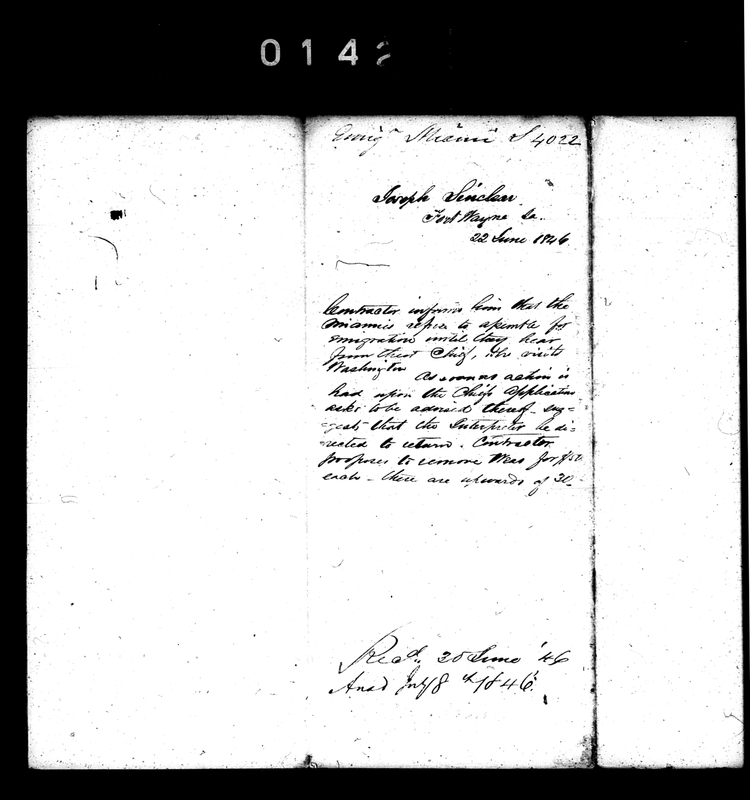 0142
Emig.n Miami S 4022
Joseph Sinclear
Fort Wayne Ia.
22 June 1846
Contractor informs him that the
Miamies refuse to assemble for
emigration until they hear
from their Chief, who visits
Washington As soon as action is
had upon the Chiefs application
asks to be advised thereof - sug=
=gests that the Interpreter be di=
=rected to return. Contractor
proposes to remove Weas for $50
each - there are upwards of 30 -
Recd. 30 June '46
Ansd July 8th 1846.